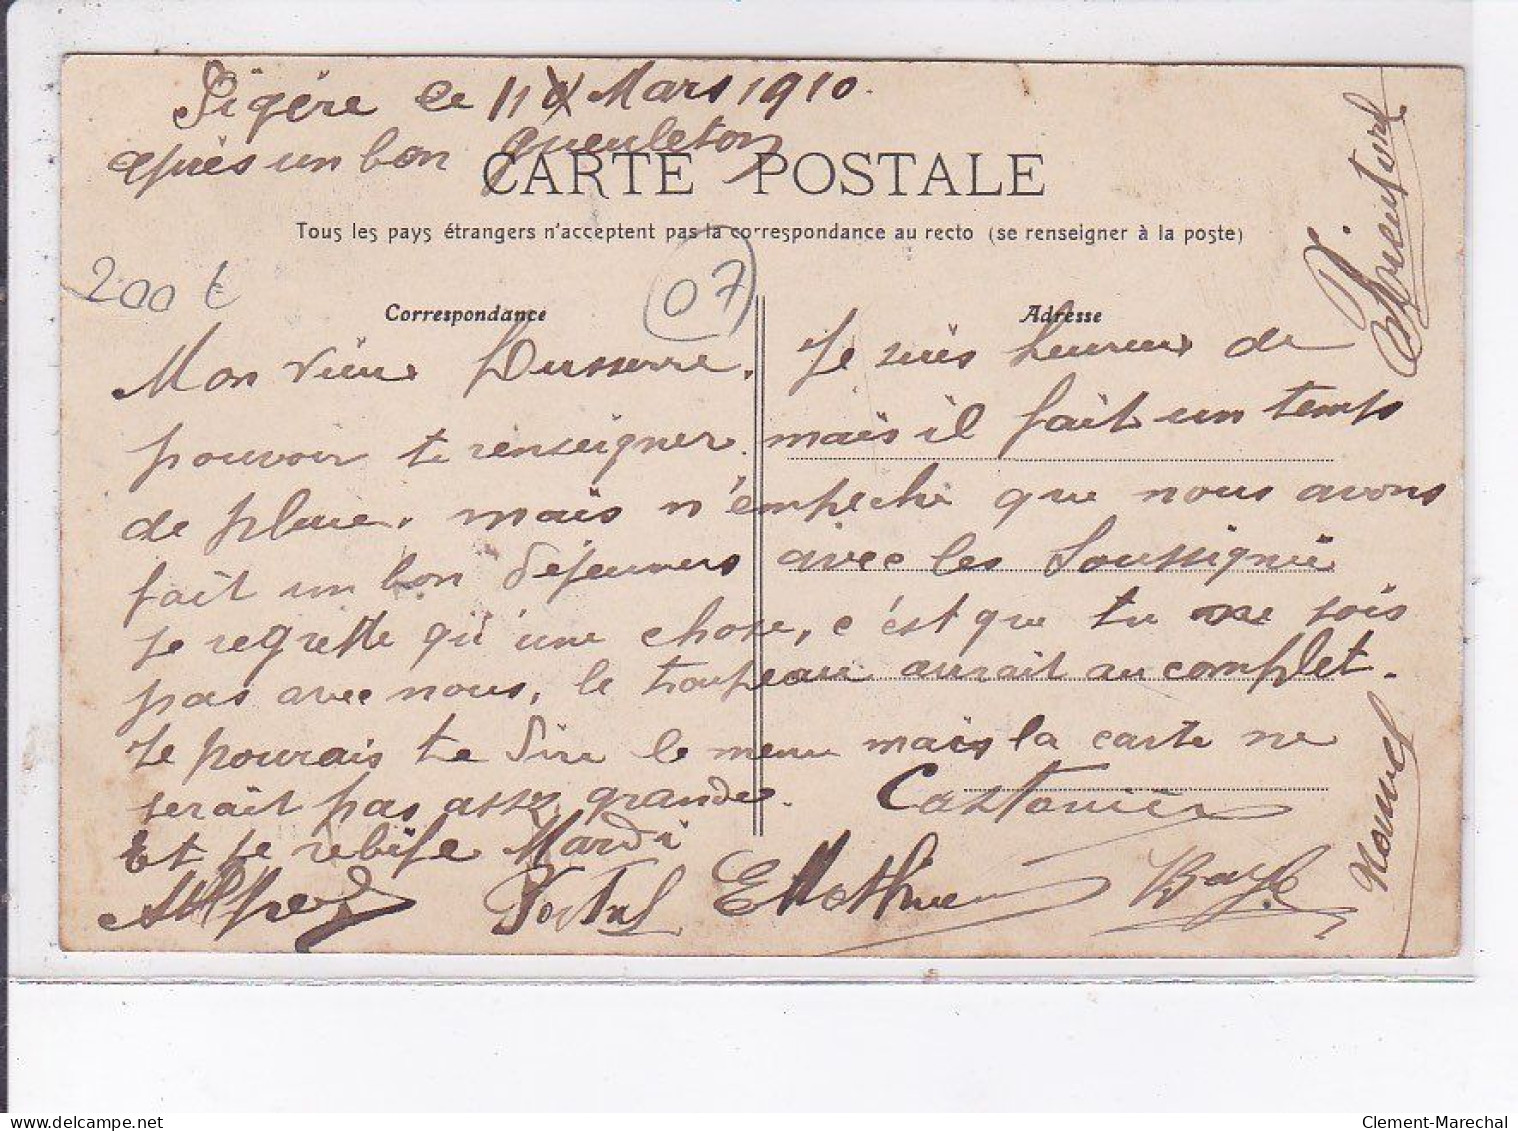 Ligère ce 11 Mars 1910.
après un bon gueuleton
CARTE POSTALE
Tous les pays étrangers n'acceptent pas la correspondance au recto (se renseigner à la poste)
200 €
07
Correspondance
Adresse
Mon vieux Dusserre. Je suis heureux de
pouvoir te renseigner. mais il fait un temps
de pluie. mais n'empeche que nous avons
fait un bon déjeuners avec les Soussignie
je regrette qu'une chose, c'est que tu ne sois
pas avec nous, le troupeau aurait au complet.
Je pourais te dire le menu mais la carte ne
serait pas assez grandes. Castanier
Et je rebife Mardi
Alfred Portal E Mathieu
Nouvel